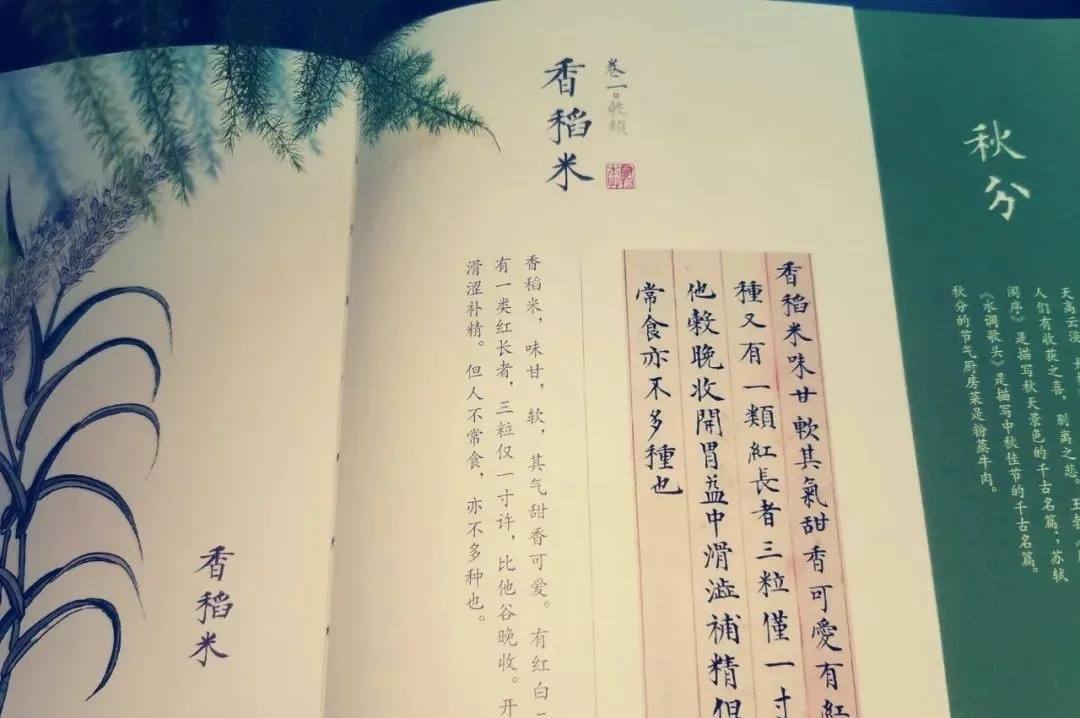 秋分
天高云淡
人们有收获之喜，别离之悲。王勃
阁序》是描写秋天景色的千古名篇；苏轼
《水调歌头》是描写中秋佳节的千古名篇。
秋分的节气厨房菜是粉蒸牛肉。
卷一。穀類
香稻米
香稻米味甘軟其氣甜香可愛有紅
種又有一類紅長者三粒僅一寸
他穀晚收開胃益中滑澁補精但
常食亦不多種也
香稻米，味甘，软，其气甜香可爱。有红白
有一类红长者，三粒仅一寸许，比他谷晚收。开
滑涩补精。但人不常食，亦不多种也。
香稻米